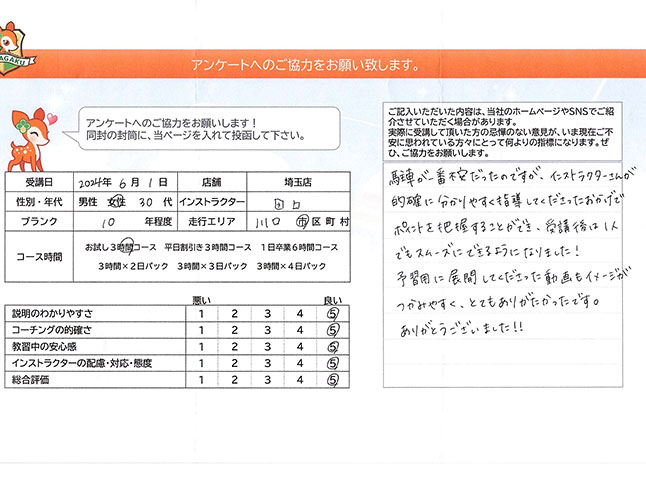 AGAKU
アンケートへのご協力をお願い致します。
アンケートへのご協力をお願いします！
同封の封筒に、当ページを入れて投函して下さい。
受講日 2024年 6月 1日 店舗 埼玉店
性別・年代 男性 女性 30代 インストラクター 田口
ブランク 10 年程度 走行エリア 川口 市区町村
コース時間 お試し3時間コース 平日割引き3時間コース 1日卒業6時間コース
3時間×2日パック 3時間×3日パック 3時間×4日パック
悪い 良い
説明のわかりやすさ 1 2 3 4 5
コーチングの的確さ 1 2 3 4 5
教習中の安心感 1 2 3 4 5
インストラクターの配慮・対応・態度 1 2 3 4 5
総合評価 1 2 3 4 5
ご記入いただいた内容は、当社のホームページやSNSでご紹
介させていただく場合があります。
実際に受講して頂いた方の忌憚のない意見が、いま現在ご不
安に思われている方々にとって何よりの指標になります。ぜ
ひ、ご協力をお願いします。
駐車が一番不安だったのですが、インストラクターさんが
的確に分かりやすく指導してくださったおかげで
ポイントを把握することができ、受講後は1人
でもスムーズにできるようになりました！
予習用に展開してくださった動画もイメージが
つかみやすく、とてもありがたかったです。
ありがとうございました！！